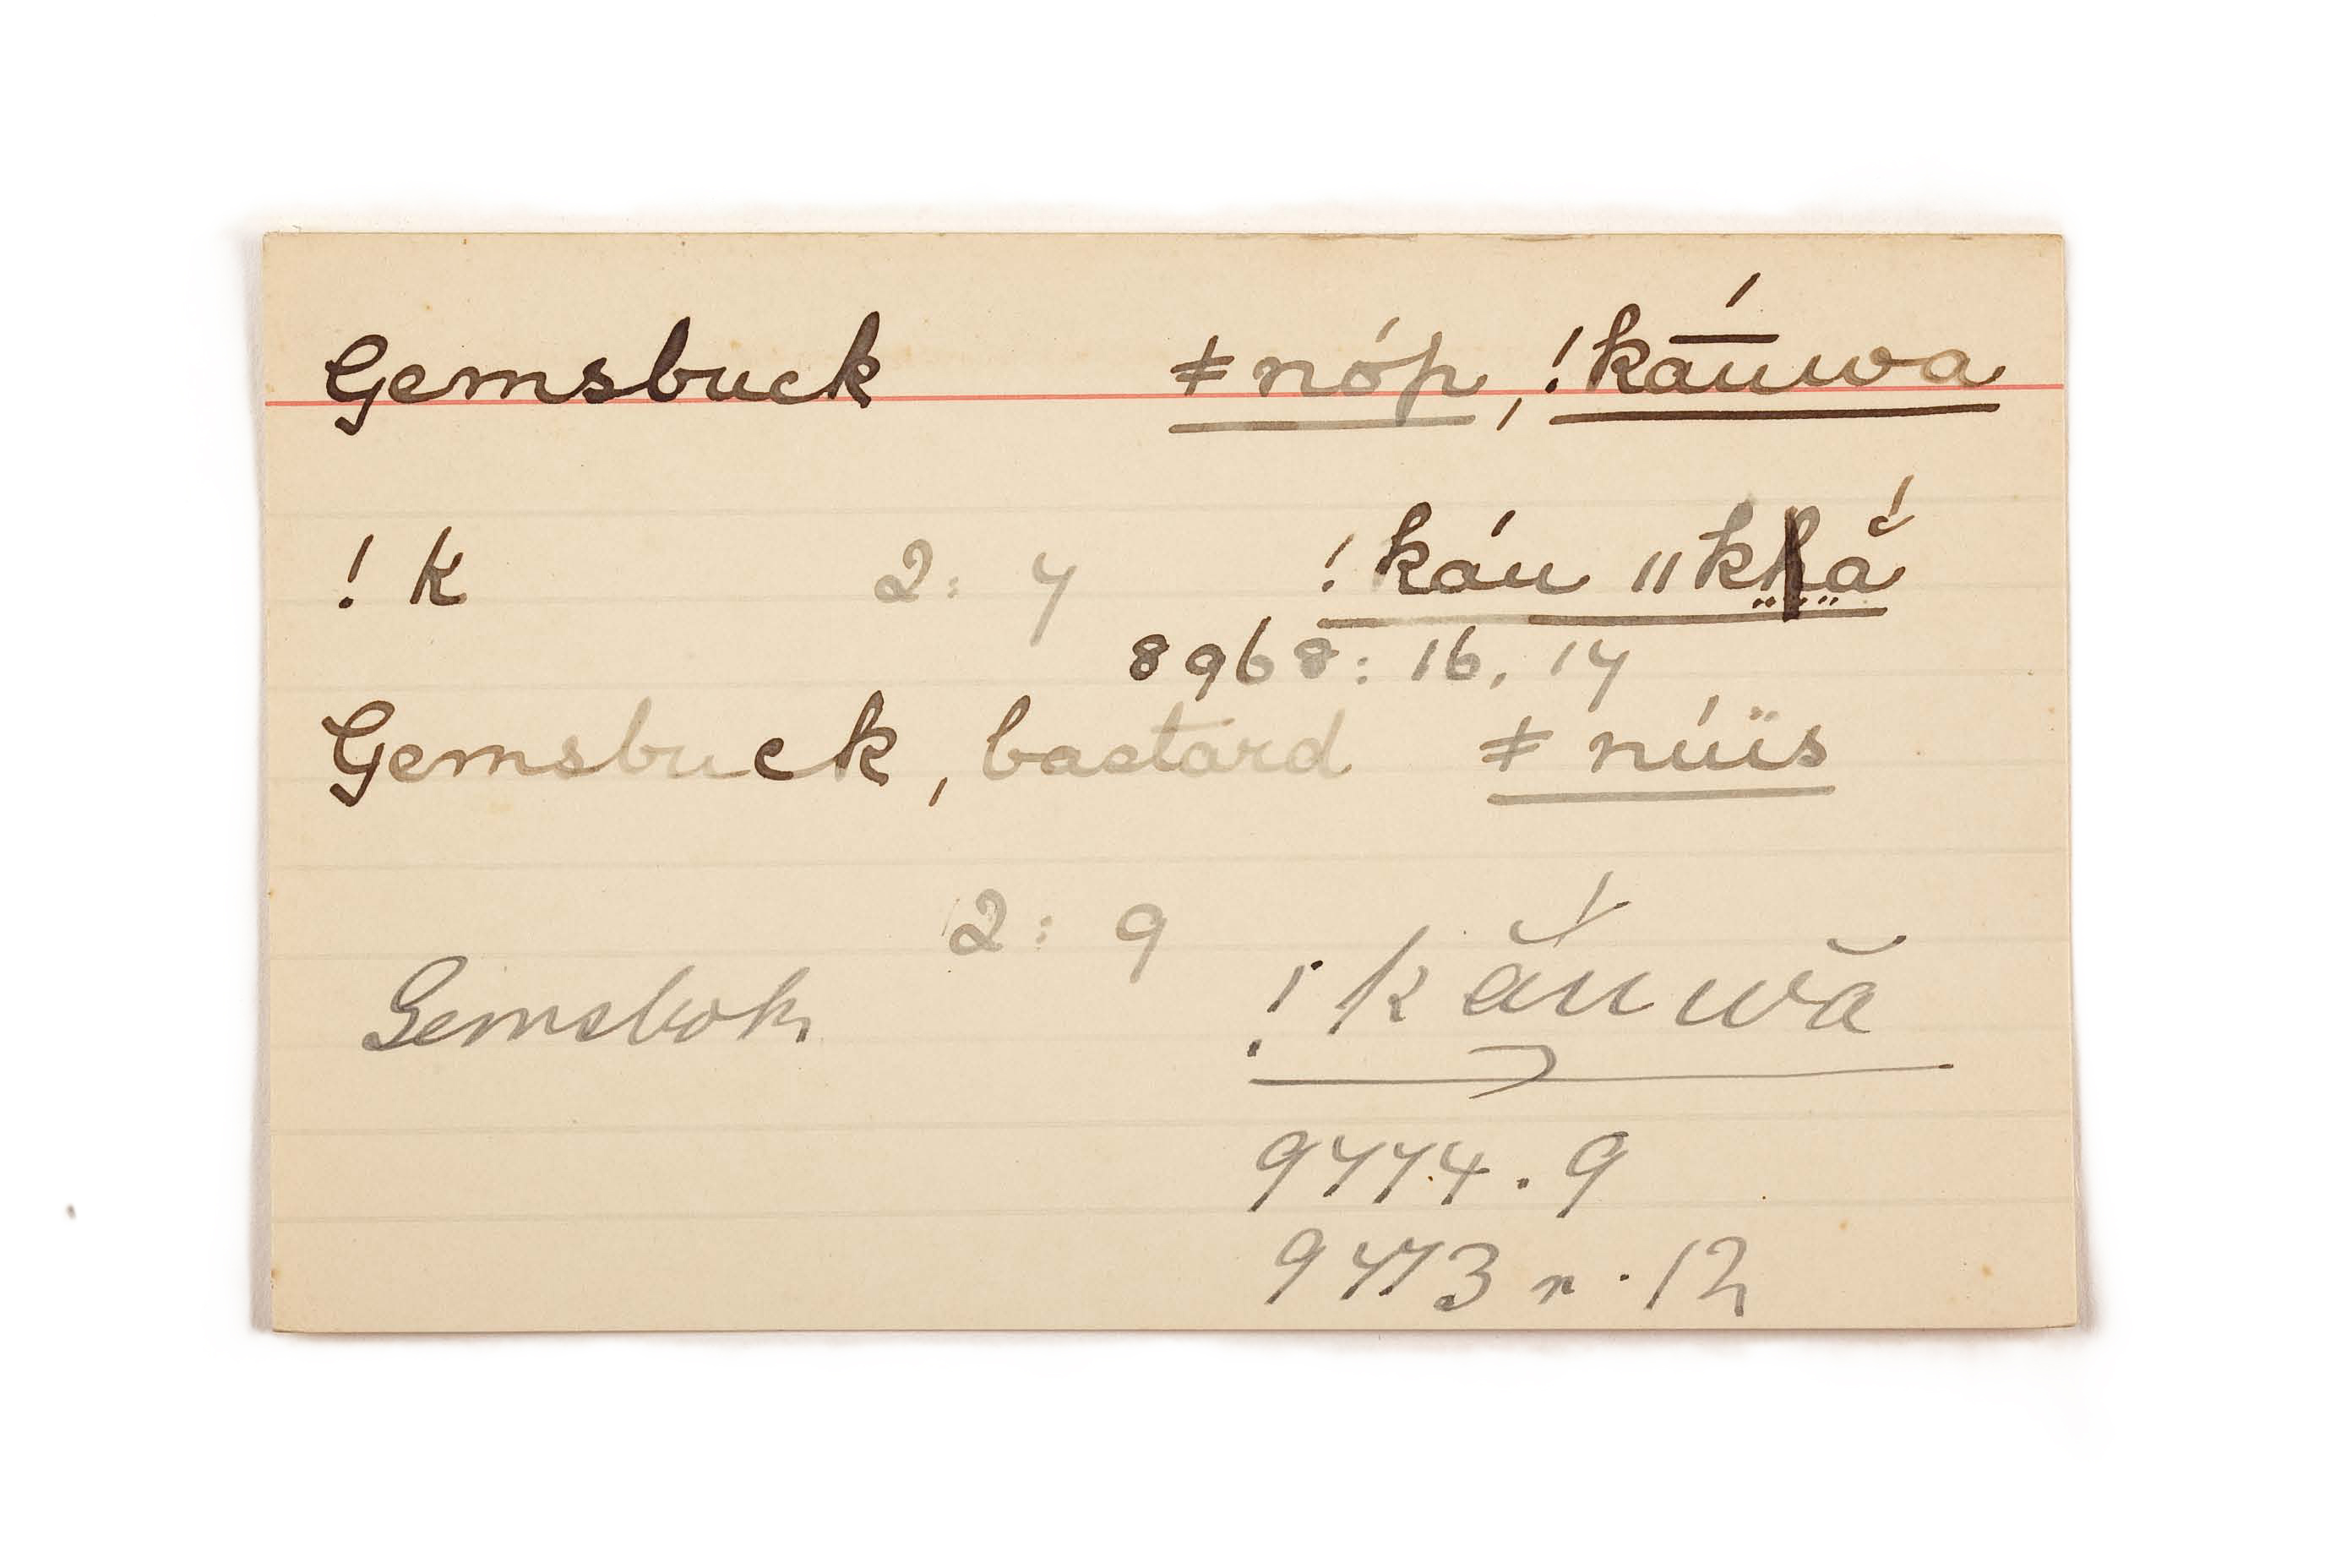 Gemsbuck ǂnóp, !kā́uwa
! k 2: 7 !káu ǁkhā̆́
8968: 16, 17
Gemsbuck, bastard ǂnúïs
2: 9
Gemsbok !kắuwă
9774. 9
9773 r. 12